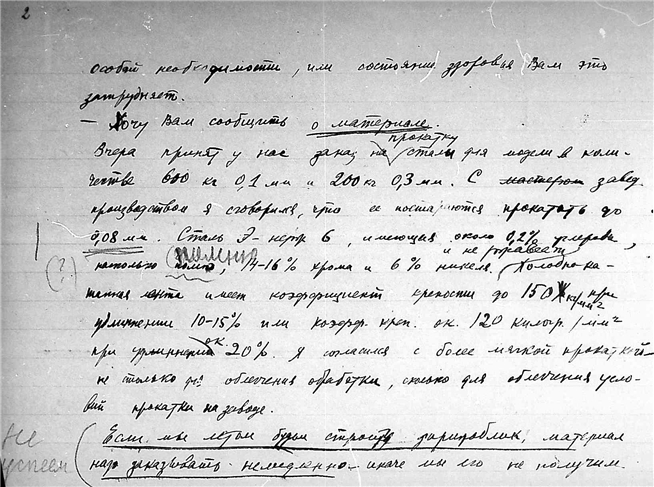 2
особой необходимости, или состояние здоровья Вам это
затрудняет.
— Хочу Вам сообщить о материале.
прокатку
Вчера принят у нас заказ на стали для модели в коли-
честве 600 кг 0,1 мм и 200 кг 0,3 мм. С мастером завед.
производством я сговорился, что ее постараются прокатать до
0,08 мм. Сталь Э-нерж 6, имеющая около 0,2% углерода,
и не ржавеет
(?) 14-16% хрома и 6% никеля. Холодно-ка-
танная лента имеет коэффициент крепости до 150 кг/мм² при
удлинении 10-15% или коэфф. креп. ок. 120 килогр/мм²
при удлинении ок. 20%. Я согласился с более мягкой прокаткой
не столько из облегчения обработки, сколько для облегчения усло-
вий прокатки на заводе.
Не
успеем
Если мы летом будем строить материал
надо заказывать немедленно — иначе мы его не получим.